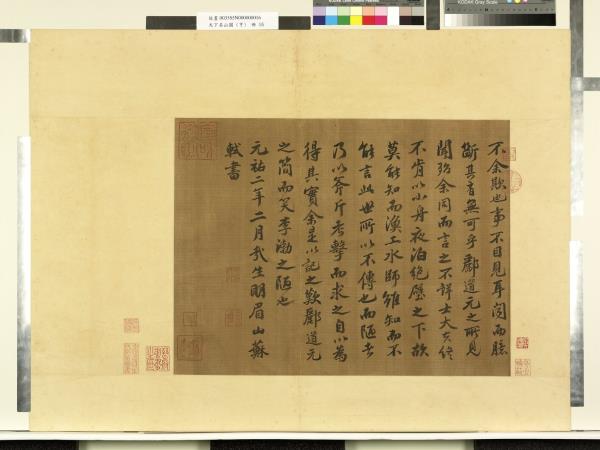 不余欺也事不目見耳聞而臆
斷其有無可乎酈道元之所見
聞殆余同而言之不詳士大夫終
不肯以小舟夜泊絕壁之下故
莫能知而漁工水師雖知而不
能言此世所以不傳也而陋者
乃以斧斤考擊而求之自以為
得其實余是以記之歎酈道元
之簡而笑李渤之陋也
元祐二年二月哉生明眉山蘇
軾書
KODAK Gray Scale